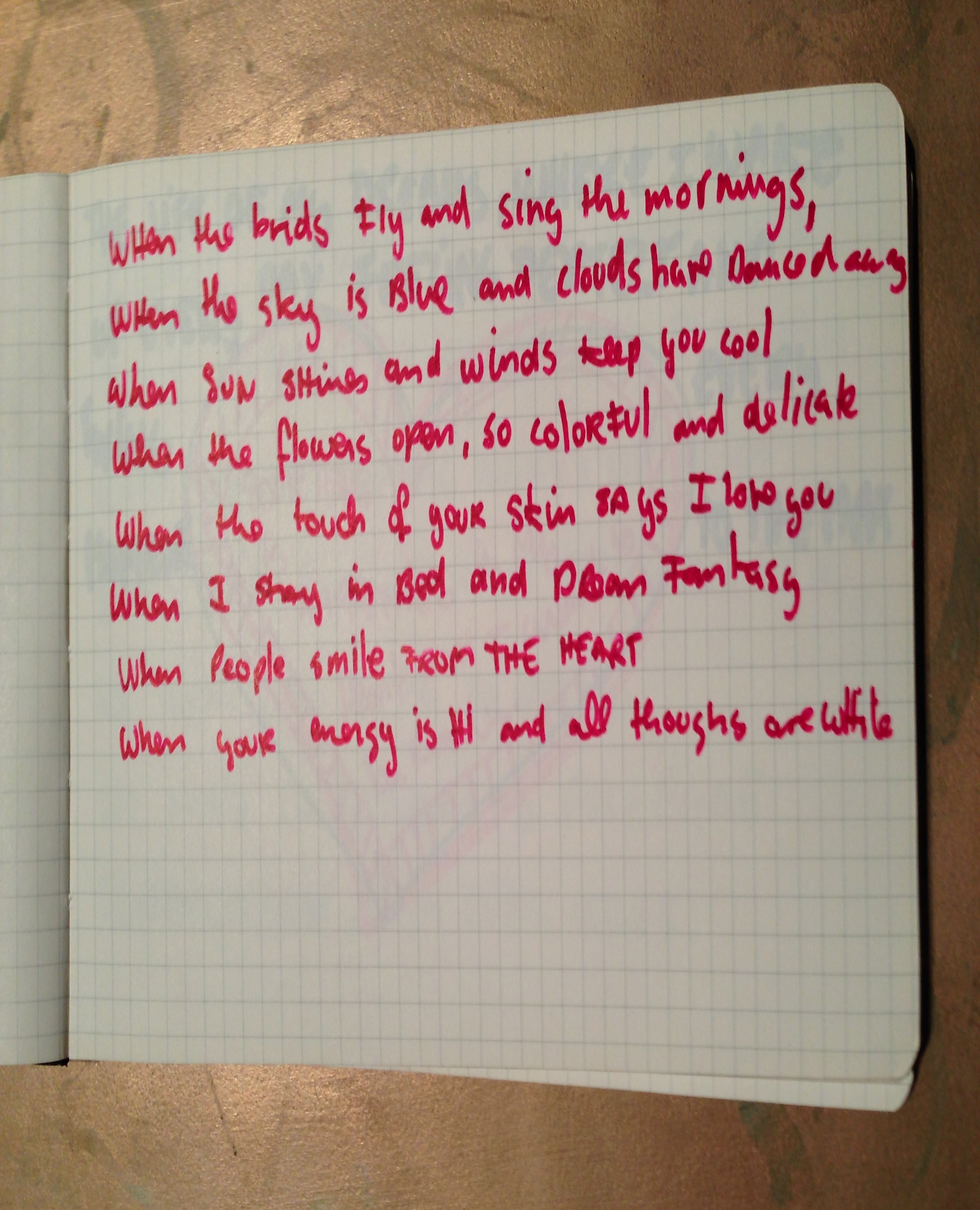 WHen the brids Fly and sing the mornings,
WHen the sky is Blue and clouds have Danced away
when SUN SHines and winds keep you cool
When the flowers open, so colorful and delicate
When the touch of your skin says I love you
When I stay in Bed and Dream Fantasy
When People smile FROM THE HEART
When your energy is Hi and all thoughs are WHite